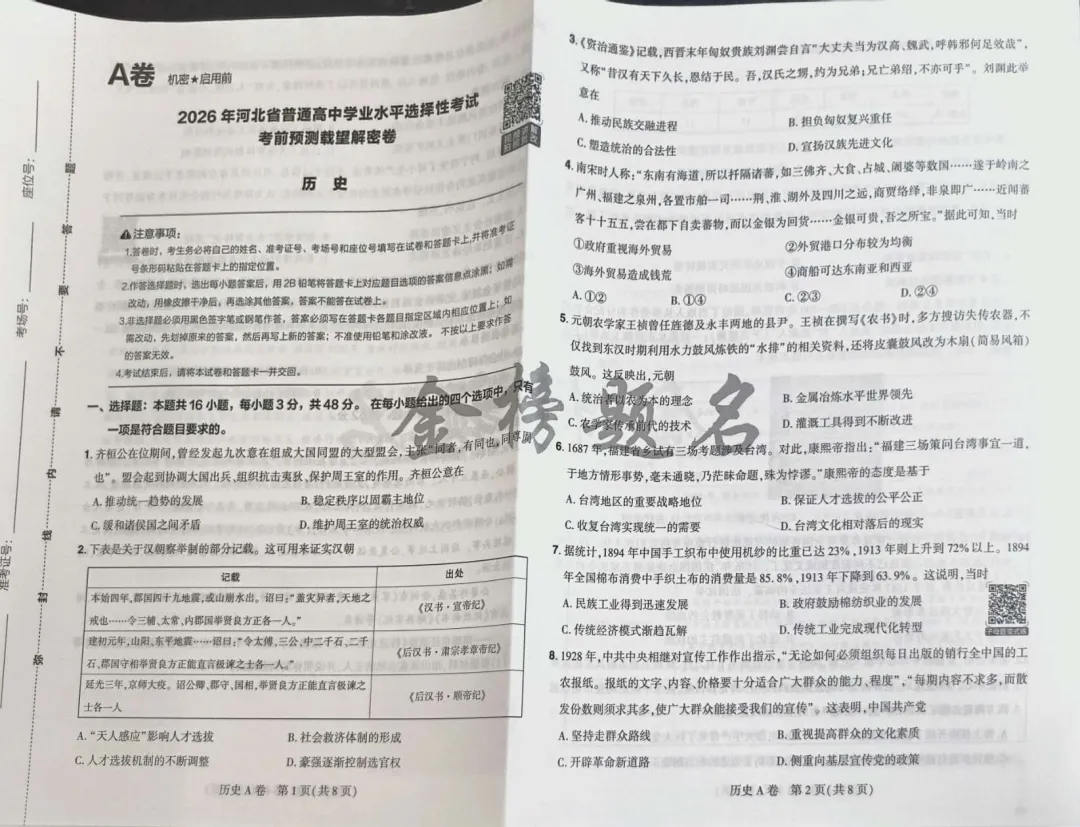 A卷 机密★启用前
2026年河北省普通高中学业水平选择性考试
考前预测载望解密卷
历 史
注意事项：
1.答卷时，考生务必将自己的姓名、准考证号、考场号和座位号填写在试卷和答题卡上，并将准考证
号条形码粘贴在答题卡上的指定位置。
2.作答选择题时，选出每小题答案后，用2B铅笔将答题卡上对应题目选项的答案信息点涂黑；如需
改动，用橡皮擦干净后，再选涂其他答案，答案不能答在试卷上。
3.非选择题必须用黑色签字笔或钢笔作答，答案必须写在答题卡各题目指定区域内相应位置上；如
需改动，先划掉原来的答案，然后再写上新的答案；不准使用铅笔和涂改液。不按以上要求作答
的答案无效。
4.考试结束后，请将本试卷和答题卡一并交回。
一、选择题：本题共16小题，每小题3分，共48分。在每小题给出的四个选项中，只有
一项是符合题目要求的。
1.齐桓公在位期间，曾经发起九次意在组成大国同盟的大型盟会，主张“同者，有同也，同尊周
也”。盟会起到协调大国出兵、组织抗击夷狄、保护周王室的作用。齐桓公意在
A.推动统一趋势的发展 B.稳定秩序以固霸主地位
C.缓和诸侯国之间矛盾 D.维护周王室的统治权威
2.下表是关于汉朝察举制的部分记载。这可用来证实汉朝
记载 出处
本始四年，郡国四十九地震，或山崩水出。诏曰：“盖灾异者，天地之
戒也……令三辅、太常、内郡国举贤良方正各一人。” 《汉书·宣帝纪》
建初元年，山阳、东平地震……诏曰：“令太傅、三公、中二千石、二千
石、郡国守相举贤良方正能直言极谏之士各一人。” 《后汉书·肃宗孝章帝纪》
延光三年，京师大疫。诏公卿、郡守、国相，举贤良方正能直言极谏之
士各一人 《后汉书·顺帝纪》
A.“天人感应”影响人才选拔 B.社会救济体制的形成
C.人才选拔机制的不断调整 D.豪强逐渐控制选官权
历史A卷 第1页(共8页)
3.《资治通鉴》记载，西晋末年匈奴贵族刘渊尝自言“大丈夫当为汉高、魏武，呼韩邪何足效哉”，
又称“昔汉有天下久长，恩结于民。吾，汉氏之甥，约为兄弟；兄亡弟绍，不亦可乎”。刘渊此举
意在
A.推动民族交融进程 B.担负匈奴复兴重任
C.塑造统治的合法性 D.宣扬汉族先进文化
4.南宋时人称：“东南有海道，所以扞隔诸蕃，如三佛齐、大食、占城、阇婆等数国……遂于岭南之
广州、福建之泉州，各置市舶一司……荆、淮、湖外及四川之远，商贾络绎，非泉即广……近闻蕃
客十十五五，尝在都下自卖蕃物，而以金银为回货……金银可贵，吾之所宝。”据此可知，当时
①政府重视海外贸易 ②外贸港口分布较为均衡
③海外贸易造成钱荒 ④商船可达东南亚和西亚
A.①② B.①④ C.②③ D.②④
5.元朝农学家王祯曾任旌德及永丰两地的县尹。王祯在撰写《农书》时，多方搜访失传农器，不
仅找到东汉时期利用水力鼓风炼铁的“水排”的相关资料，还将皮囊鼓风改为木扇（简易风箱）
鼓风。这反映出，元朝
A.统治者以农为本的理念 B.金属冶炼水平世界领先
C.农学家传承前代的技术 D.灌溉工具得到不断改进
6.1687年，福建省乡试有三场考题涉及台湾。对此，康熙帝指出：“福建三场策问台湾事宜一道，
于地方情形事势，毫未通晓，乃茫昧命题，殊为悖谬。”康熙帝的态度是基于
A.台湾地区的重要战略地位 B.保证人才选拔的公平公正
C.收复台湾实现统一的需要 D.台湾文化相对落后的现实
7.据统计，1894年中国手工织布中使用机纱的比重已达23%，1913年则上升到72%以上。1894
年全国棉布消费中手织土布的消费量是85.8%，1913年下降到63.9%。这说明，当时
A.民族工业得到迅速发展 B.政府鼓励棉纺织业的发展
C.传统经济模式渐趋瓦解 D.传统工业完成现代化转型
8.1928年，中共中央相继对宣传工作作出指示，“无论如何必须组织每日出版的销行全中国的工
农报纸。报纸的文字、内容、价格要十分适合广大群众的能力、程度”，“每期内容不求多，而散
发份数则须求其多，使广大群众能接受我们的宣传”。这表明，中国共产党
A.坚持走群众路线 B.重视提高群众的文化素质
C.开辟革命新道路 D.侧重向基层宣传党的政策
历史A卷 第2页(共8页)
座位号：
考场号：
准考证号：
弥 封 线 内 请 不 要 答 题
金榜题名